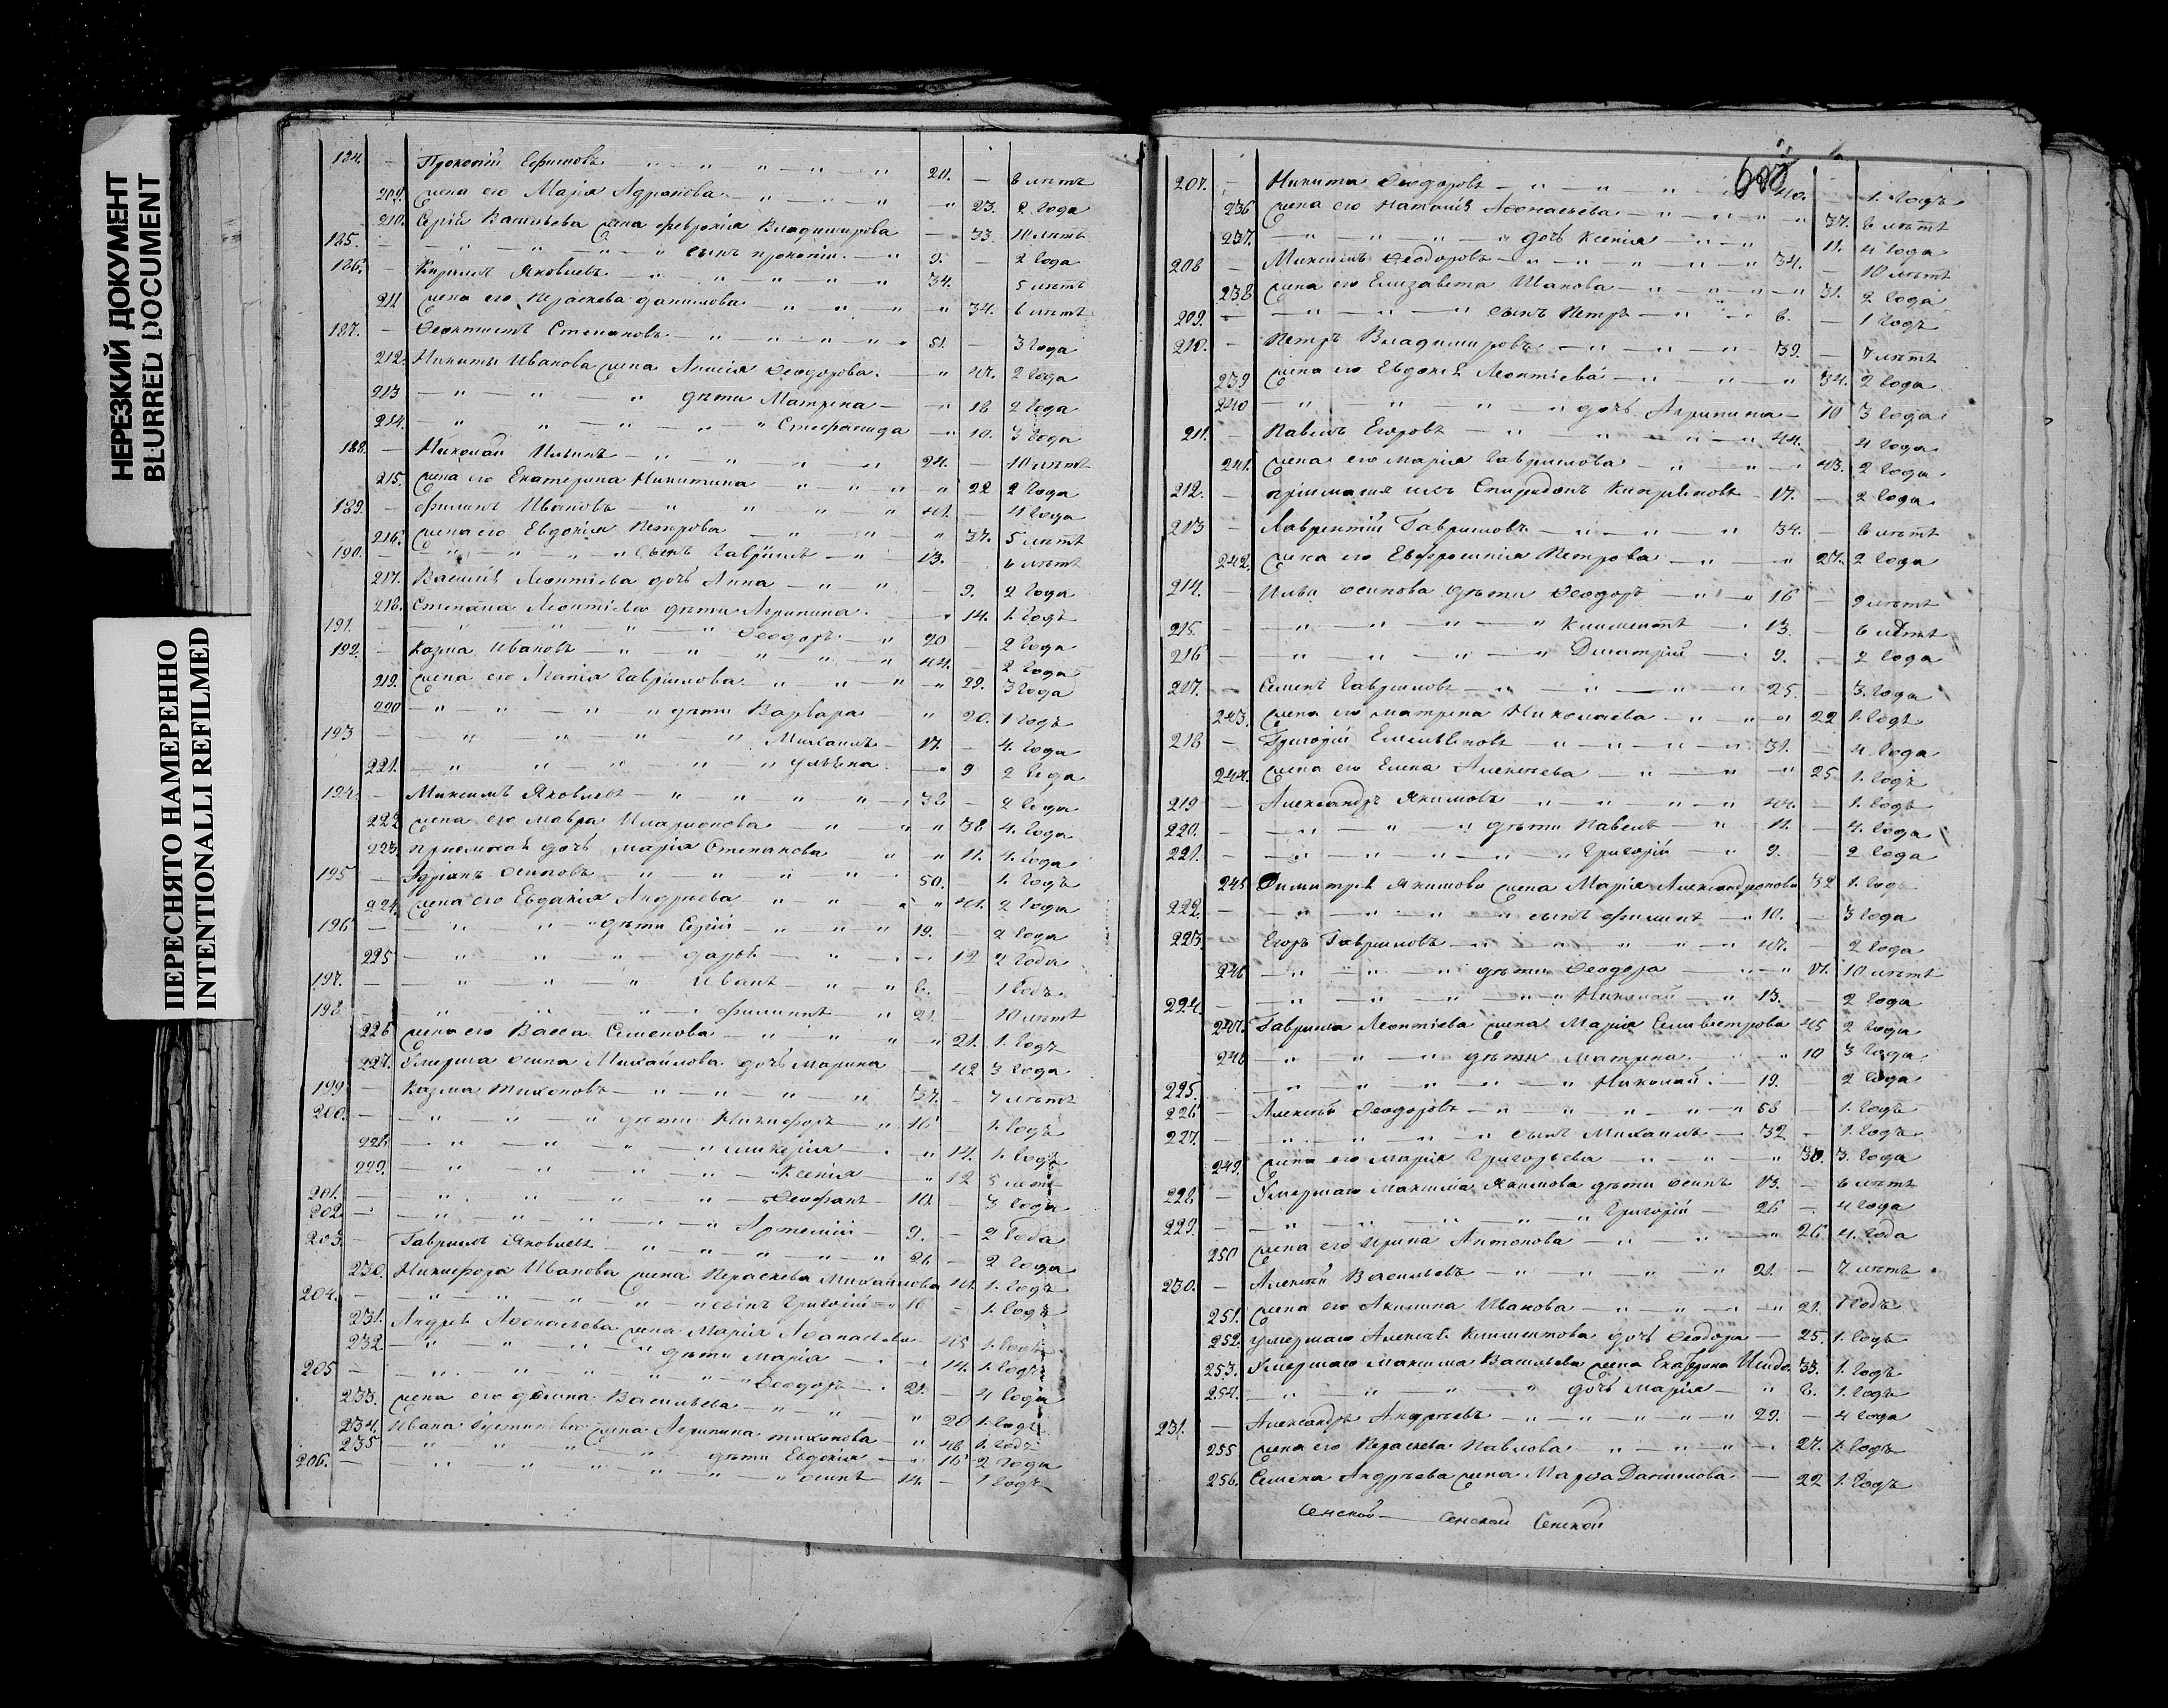 НЕРЕЗКИЙ ДОКУМЕНТ
BLURRED DOCUMENT
ПЕРЕСНЯТО НАМЕРЕННО
INTENTIONALLI REFILMED
184. — Прокопій Ефимовъ — " — " — " — " 20. — 6 лѣтъ
209. жена его Марія — " — " — " 23. 2 года
210. Сергѣя Васильева жена Февронія Владимирова — 33. 10 лѣтъ
185. — " — " — " сынъ Прокопій — " 9. — 2 года
186. — Кирилъ Яковлевъ — " — " — " 34. 5 лѣтъ
211 жена его Параскева Данилова — " — " — " 34. 6 лѣтъ
187. — Феоктистъ Степановъ — " — " — " 51. — 3 года
212. Никиты Иванова жена Анисія Феодорова — " 47. 2 года
213 — " — " — " дѣти Матрена — " 18 2 года
214. — " — " — " — " Стефанида — " 10. 3 года
188. — Николай Ильинъ — " — " — " 24. — 10 лѣтъ
215. жена его Екатерина Никитина — " — " " 22 2 года
189. — Филипъ Ивановъ — " — " — " 41. — 4 года
216. жена его Евдокія Петрова — " — " " 37. 5 лѣтъ
190. — " — " — " сынъ Гавріилъ — " 13. — 6 лѣтъ
217. Василія Леонтіева дочь Анна — " — " 9. 2 года
218. Степана Леонтіева дѣти Агрипина — " 14. 1. годъ
191. — " — " — " — " Феодоръ — " 20 2 года
192. — Козма Ивановъ — " — " — " — " 44. 2 года
219. жена его Агапія Гавриилова — " — " — " 29. 3 года
220 — " — " — " дѣти Варвара — " 20. 1 годъ
193 — " — " — " — " Михаилъ — 17. — 4. года
221. — " — " — " — " Ульяна — " 9 2 года
194. — Максимъ Яковлевъ — " — " — " — " 38 — 2 года
222 жена его Мавра Иларионова — " — " " 38 4. года
223. дочь Марія Степанова — " " 11. 4. года
195 — Адріанъ Осиповъ — " — " — " 50. — 1. годъ
224. жена его Евдокія Андреева — " — " " 41. 2 года
196 — " — " — " дѣти Сергій — " — " 19. — 2 года
225 — " — " — " Дарья — " — " 12 2 года
197. — " — " — " Иванъ — " — " 6. — 1 годъ
198 — " — " — " Филиппъ — " 21. 10 лѣтъ
226 жена его Васса Семенова — " — " " 21. 1. годъ
227. Умерша Осипа Михайлова дочь Марина — 42 3 года
199 — Козма Тихоновъ — " — " — " — " 37. — 7 лѣтъ
200. — " — " — " дѣти Никифоръ — " 16 1. годъ
228 — " — " — " — " Гликерія — " 14. 1. годъ
229. — " — " — " — " Ксенія — " 12 5 лѣтъ
201. — " — " — " — " Феофанъ — 10. — 3 года
202. — " — " — " — " Артемій — 9. — 2 года
203. — Гавриилъ Яковлевъ — " — " — " — " 21 — 2 года
230. Никифора Иванова жена Параскева Михайлова 41. 1. годъ
204. — " — " — " — " сынъ Григорій — " 16 — 1. годъ
231. Андрея Афонасьева жена Марія Афанасьева 45 1. годъ
232. — " — " — " дѣти Марія — " 14. 1. годъ
205 — " — " — " — " Феодоръ — " 21. — 4 года
233. жена его Васильева — " — " " 20 1. годъ
234. Ивана жена Агрипина Тихонова — " 48 1. годъ
235 — " — " — " дѣти Евдокія — " 16 2 года
206. — " — " — " — " Осипъ 14. — 1 годъ
207. — Никита Феодоровъ — " — " — " 40. — 1. годъ
236 жена его Наталія Афонасьева — " — " " 37. 6 лѣтъ
237. — " — " — " дочь Ксенія — " — " 11. 4 года
208 — Максимъ Феодоровъ — " — " — " 34. — 10 лѣтъ
238 жена его Елизавета — " — " — " 31. 2 года
209. — " — " — " сынъ Петръ — " 6. — 1 годъ
210. — Петръ Владимировъ — " — " — " 39. — 7 лѣтъ
239 жена его Евдокія Леонтіева — " — " 34. 2 года
240 — " — " — " — " дочь Агрипина — 10 3 года
211. — Павелъ Егоровъ — " — " — " 44. — 4 года
241. жена его Марія Гаврилова — " — " 43. 2 года
212. — Спиридонъ 17. — 2 года
213 — Лаврентій Гавриловъ — " — " — " 34. — 6 лѣтъ
242. жена его Евфросинія Петрова — " — " 27. 2 года
214. — Осипова дѣти Феодоръ — " — " 16 — 9 лѣтъ
215. — " — " — " — " Климентъ — 13. — 6 лѣтъ
216 — " — " — " — " Димитрій — 9. — 2 года
217. — Семенъ Гавриловъ — " — " — " 25. — 3. года
243. жена его Матрена Николаева — " — " " 22 1. годъ
218 — Григорій Емельяновъ — " — " — " 31. — 4. года
244. жена его Елена Алексѣева — " — " 25 1. годъ
219 — Александръ Якимовъ — " — " — " 44. — 1. годъ
220. — " — " — " дѣти Павелъ — " 11. — 4. года
221. — " — " — " — " Григорій — " 9. — 2 года
245 Димитрія Якимова жена Марія 32 1. годъ
222. — " — " — " — " сынъ Филипъ — " 10. — 3 года
223. Егоръ Гавриловъ — " — " — " 47. — 2 года
246 — " — " — " дѣти Феодора — " — " 17. 10 лѣтъ
224. — " — " — " — " Николай — " 13. — 2 года
247. Гаврила Леонтіева жена Марія Селивестрова 45 2 года
248 — " — " — " дѣти Матрена — " 10 3 года
225. — " — " — " — " Николай — 19. 2 года
226 — Алексѣй Феодоровъ — " — " — " — " 58 1. годъ
227. — " — " — " — " сынъ Михаилъ — 32 — 1. годъ
249. жена его Марія Григорьева — " — " " 30. 3. года
228 — Умершаго Максима Якимова дѣти Осипъ 13. — 6 лѣтъ
229. — " — " — " — " Григорій — 26 — 4 года
250 жена его Ирина Антонова — " — " — " 26 4. года
230. — Алексѣй Васильевъ — " — " — " 21. — 7 лѣтъ
251. жена его Акилина Иванова — " — " — " 21. 1 годъ
252. Умершаго Алексѣя Климентова дочь Феодора — 25. 1. годъ
253. Умершаго Максима Васильева жена Екатерина 33. 1. годъ
254. — " — " — " — " дочь Марія — " 6. 1. годъ
231. — Александръ Андреевъ — " — " — " 29. — 4 года
255 жена его Параскева Павлова — " — " — " 27. 1. годъ
256. Семена Андрѣева жена Марѳа Данилова — 22 1. годъ
Сенской — Сенской Сенской